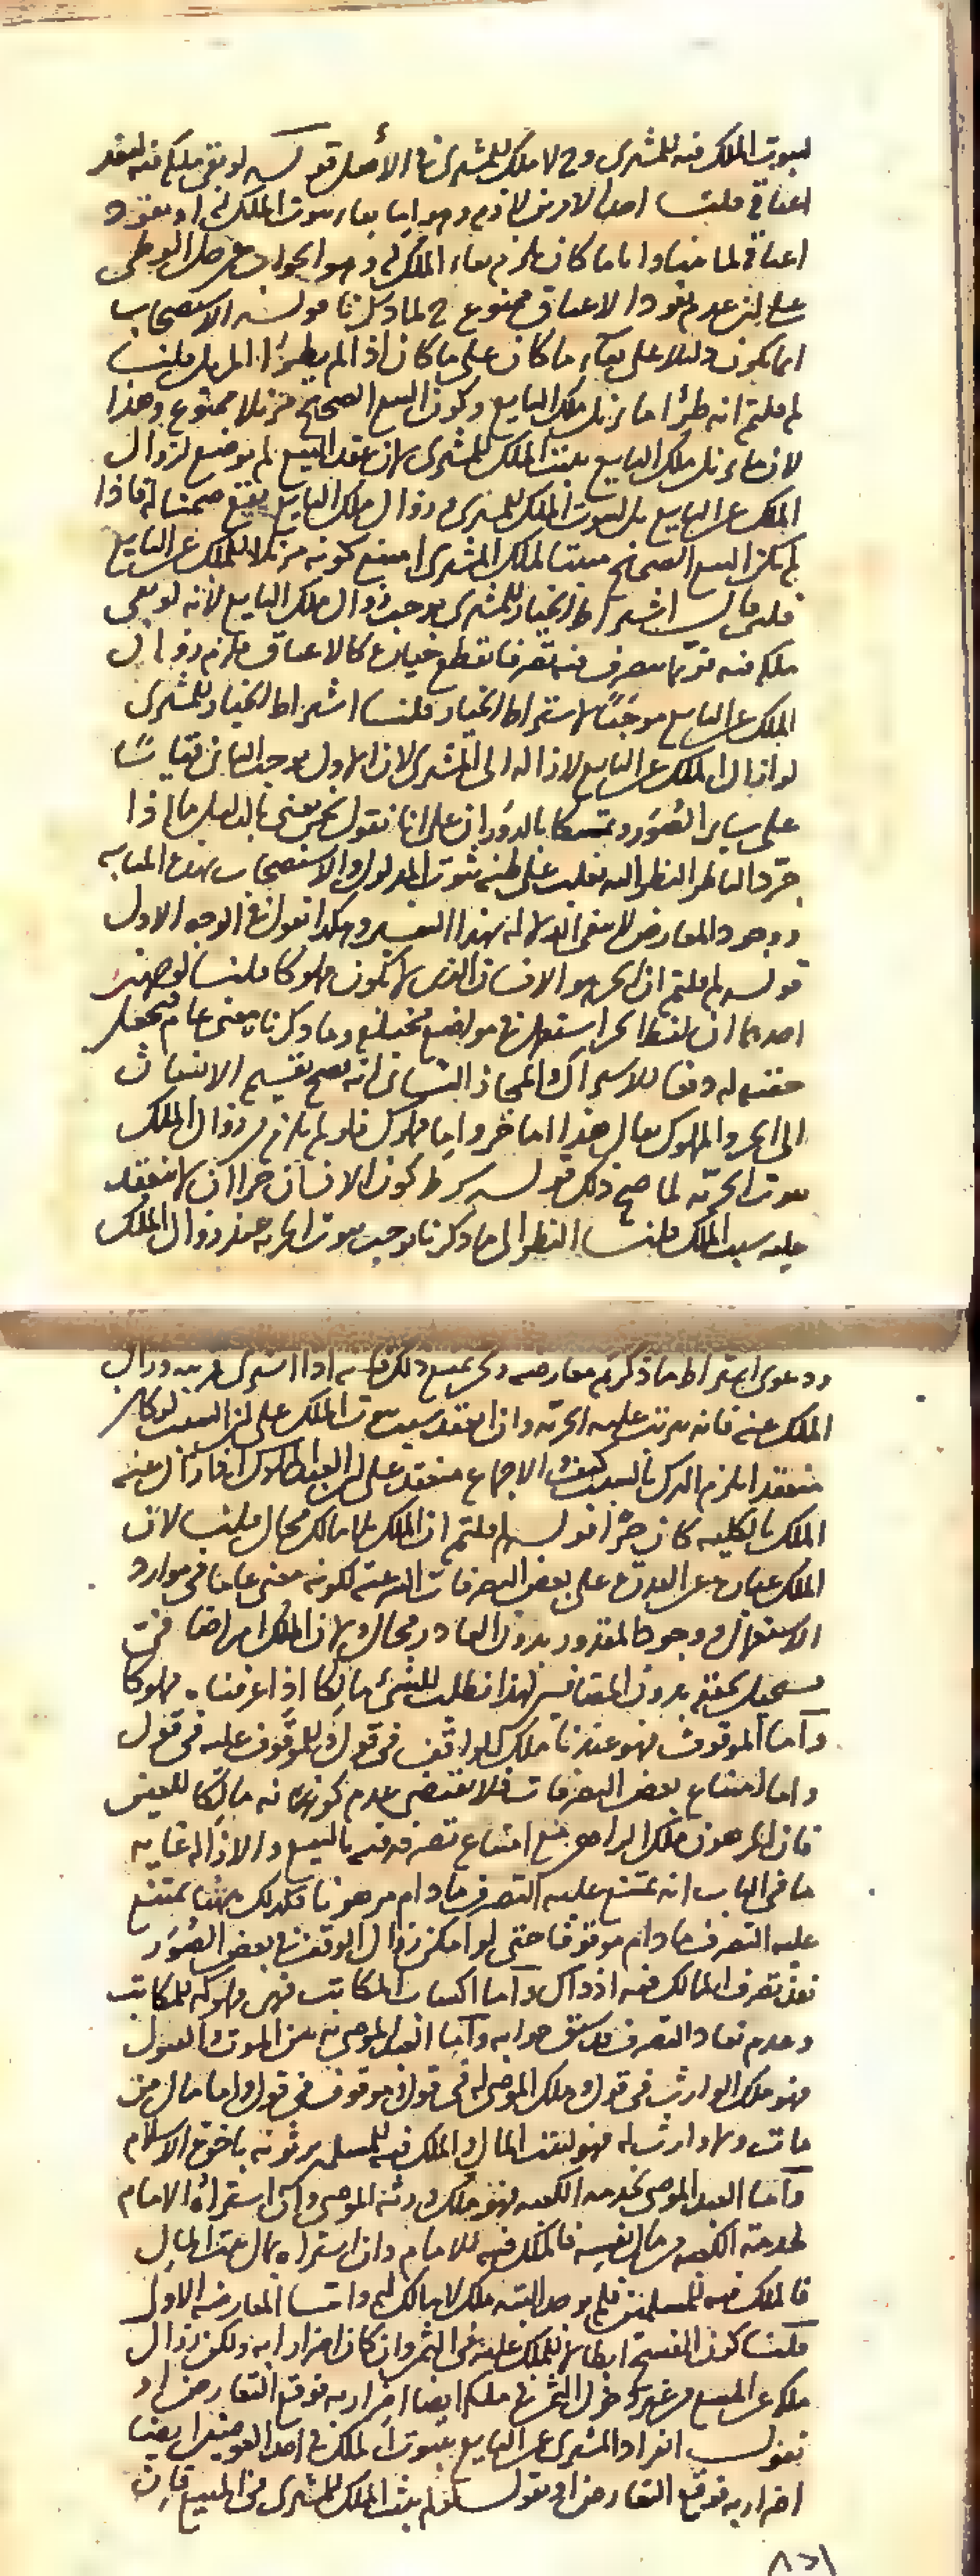 لثبوت الملك فيه للمشترى وح لا ملك للمشترى فى الأصل قوله لو بقى ملكه فيه لنفذ
اعتاقه قلنا احد الامرين لازم وهو اما بقاء ثبوت الملك له او نفوذ
اعتاقه لما مضى واياما كان يلزم بقاء الملك له وهو الجواب عن حل الوطى
على ان عدم نفوذ الاعتاق ممنوع ح لما ذكرنا قوله الاستصحاب
انما يكون دليلا على بقاء ما كان على ما كان اذا لم يطرأ المزيل قلنا
لم قلتم انه طرأ ما يزيل ملك البايع وكون البيع الصحيح مزيلا ممنوع وهذا
لان ما يزيل ملك البايع يثبت الملك للمشترى لان عقد البيع لم يوضع لزوال
الملك عن البايع بل لثبوت الملك للمشترى وزوال ملك البايع يقع ضمنا له فاذا
لم يكن البيع الصحيح مثبتا لملك المشترى امتنع كونه مزيلا للملك عن البايع
فلئن قال اشتراط الخيار للمشترى يوجب زوال ملك البايع لانه لو بقى
ملكه فيه فربما يتصرف فيه تصرفا يقطع خياره كالاعتاق فلزم زوال
الملك عن البايع موجبا لاشتراط الخيار قلنا اشتراط الخيار للمشترى
لو ازال الملك عن البايع لازاله الى المشترى لان الاول يوجب الثانى قياسا
على ساير الصور وتمسكا بالدوران على انا نقول نحن نعنى بالدليل ما اذا
جرد الناظر النظر اليه يغلب على ظنه ثبوت المدلول والاستصحاب بهذه المثابه
ووجود المعارض لا ينفى الدلاله بهذا التفسير وهكذا نقول فى الوجه الاول
قوله لم قلتم ان الحر هو الانسان الذى لا يكون مملوكا قلنا لوجهين
احدهما ان لفظ الحر استعمل فى مواضع مختلفه وما ذكرنا معنى عام فيجعل
حقيقه له دفعا للاشتراك والمجاز الثانى انه يصح تقسيم الانسان
الى الحر والمملوك يقال هذا اما حر واما مملوك فلو لم يلزم من زوال الملك
ثبوت الحريه لما صح ذلك قوله شرط كون الانسان حرا ان لا ينعقد
عليه سبب الملك قلنا النظر الى ما ذكرنا يوجب ثبوت الحريه عند زوال الملك
ودعوى اشتراط ما ذكرتم معارضه ونحن نمنع ذلك فانه اذا اشترى قريبه وزال
الملك عنه فانه يترتب عليه الحريه وان انعقد سبب ثبوت الملك على ان السبب لو كان
منعقدا يلزم الترك بالسبب كيف والاجماع منعقد على ان العبد المملوك اذا زال عنه
الملك بالكليه كان حرا قوله لم قلتم ان الملك بلا مالك محال قلنا لان
الملك عباره عن القدره على بعض التصرفات الشرعيه لكونه معنى عاما فى موارد
الاستعمال ووجود المقدور بدون القادر محال ولان الملك امر اضافى
يستحيل تحققه بدون المتضايفين لهذا نطلب للشىء مالكا اذا عرفناه مملوكا
واما الموقوف فهو عندنا ملك الواقف فى قول وللموقوف عليه فى قول
واما امتناع بعض التصرفات فلا يقتضى عدم كونه مالكا للعين
فان المرهون ملك الراهن مع امتناع تصرفه فيه بالبيع والازاله غايه
ما فى الباب انه يمتنع عليه التصرف ما دام مرهونا فكذلك هنا يمتنع
عليه التصرف ما دام موقوفا حتى لو امكن زوال الوقف فى بعض الصور
نفذ تصرف المالك فيه اذ ذاك واما اكساب المكاتب فهى مملوكه للمكاتب
وعدم نفاذ التصرف قد سبق جوابه واما العبد الموصى به بين الموت والقبول
فهو ملك الوارث فى قول وملك الموصى له فى قول وموقوف فى قول واما مال من
مات ولا وارث له فهو لبيت المال والملك فيه للمسلمين يرثونه باخوة الاسلام
واما العبد الموصى بخدمه الكعبه فهو ملك ورثه الموصى وان اشتراه الامام
لخدمة الكعبه من مال نفسه فالملك فيه للامام وان اشتراه بمال بيت المال
فالملك فيه للمسلمين فلم يوجد البته ملك لا مالك له واما المعارضه الاولى
قلنا كون الفسخ ابطالا للملك عليه فى الثمن وان كان اضرارا به ولكن زوال
ملكه عن المبيع من غير دخول الثمن فى ملكه ايضا اضرار به فوقع التعارض او
نقول انفراد المشترى عن البايع بثبوت الملك فى احد العوضين ايضا
اضرار به فوقع التعارض او نقول لو لم يثبت الملك للمشترى فى المبيع فان